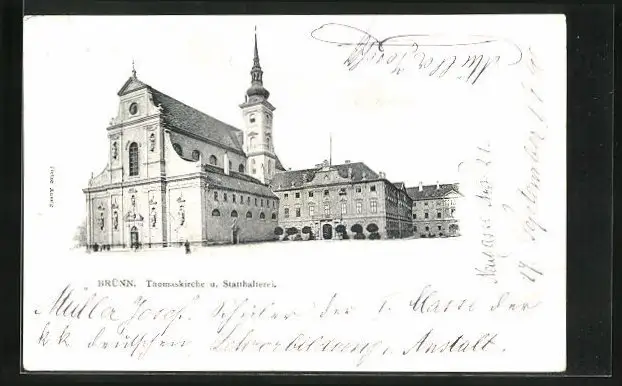 BRÜNN. Thomaskirche u. Statthalterei.
Müller Josef. Schüler der I. Classe der
k k deutschen Lehrerbildungs Anstalt.
Müller Josef
17 September